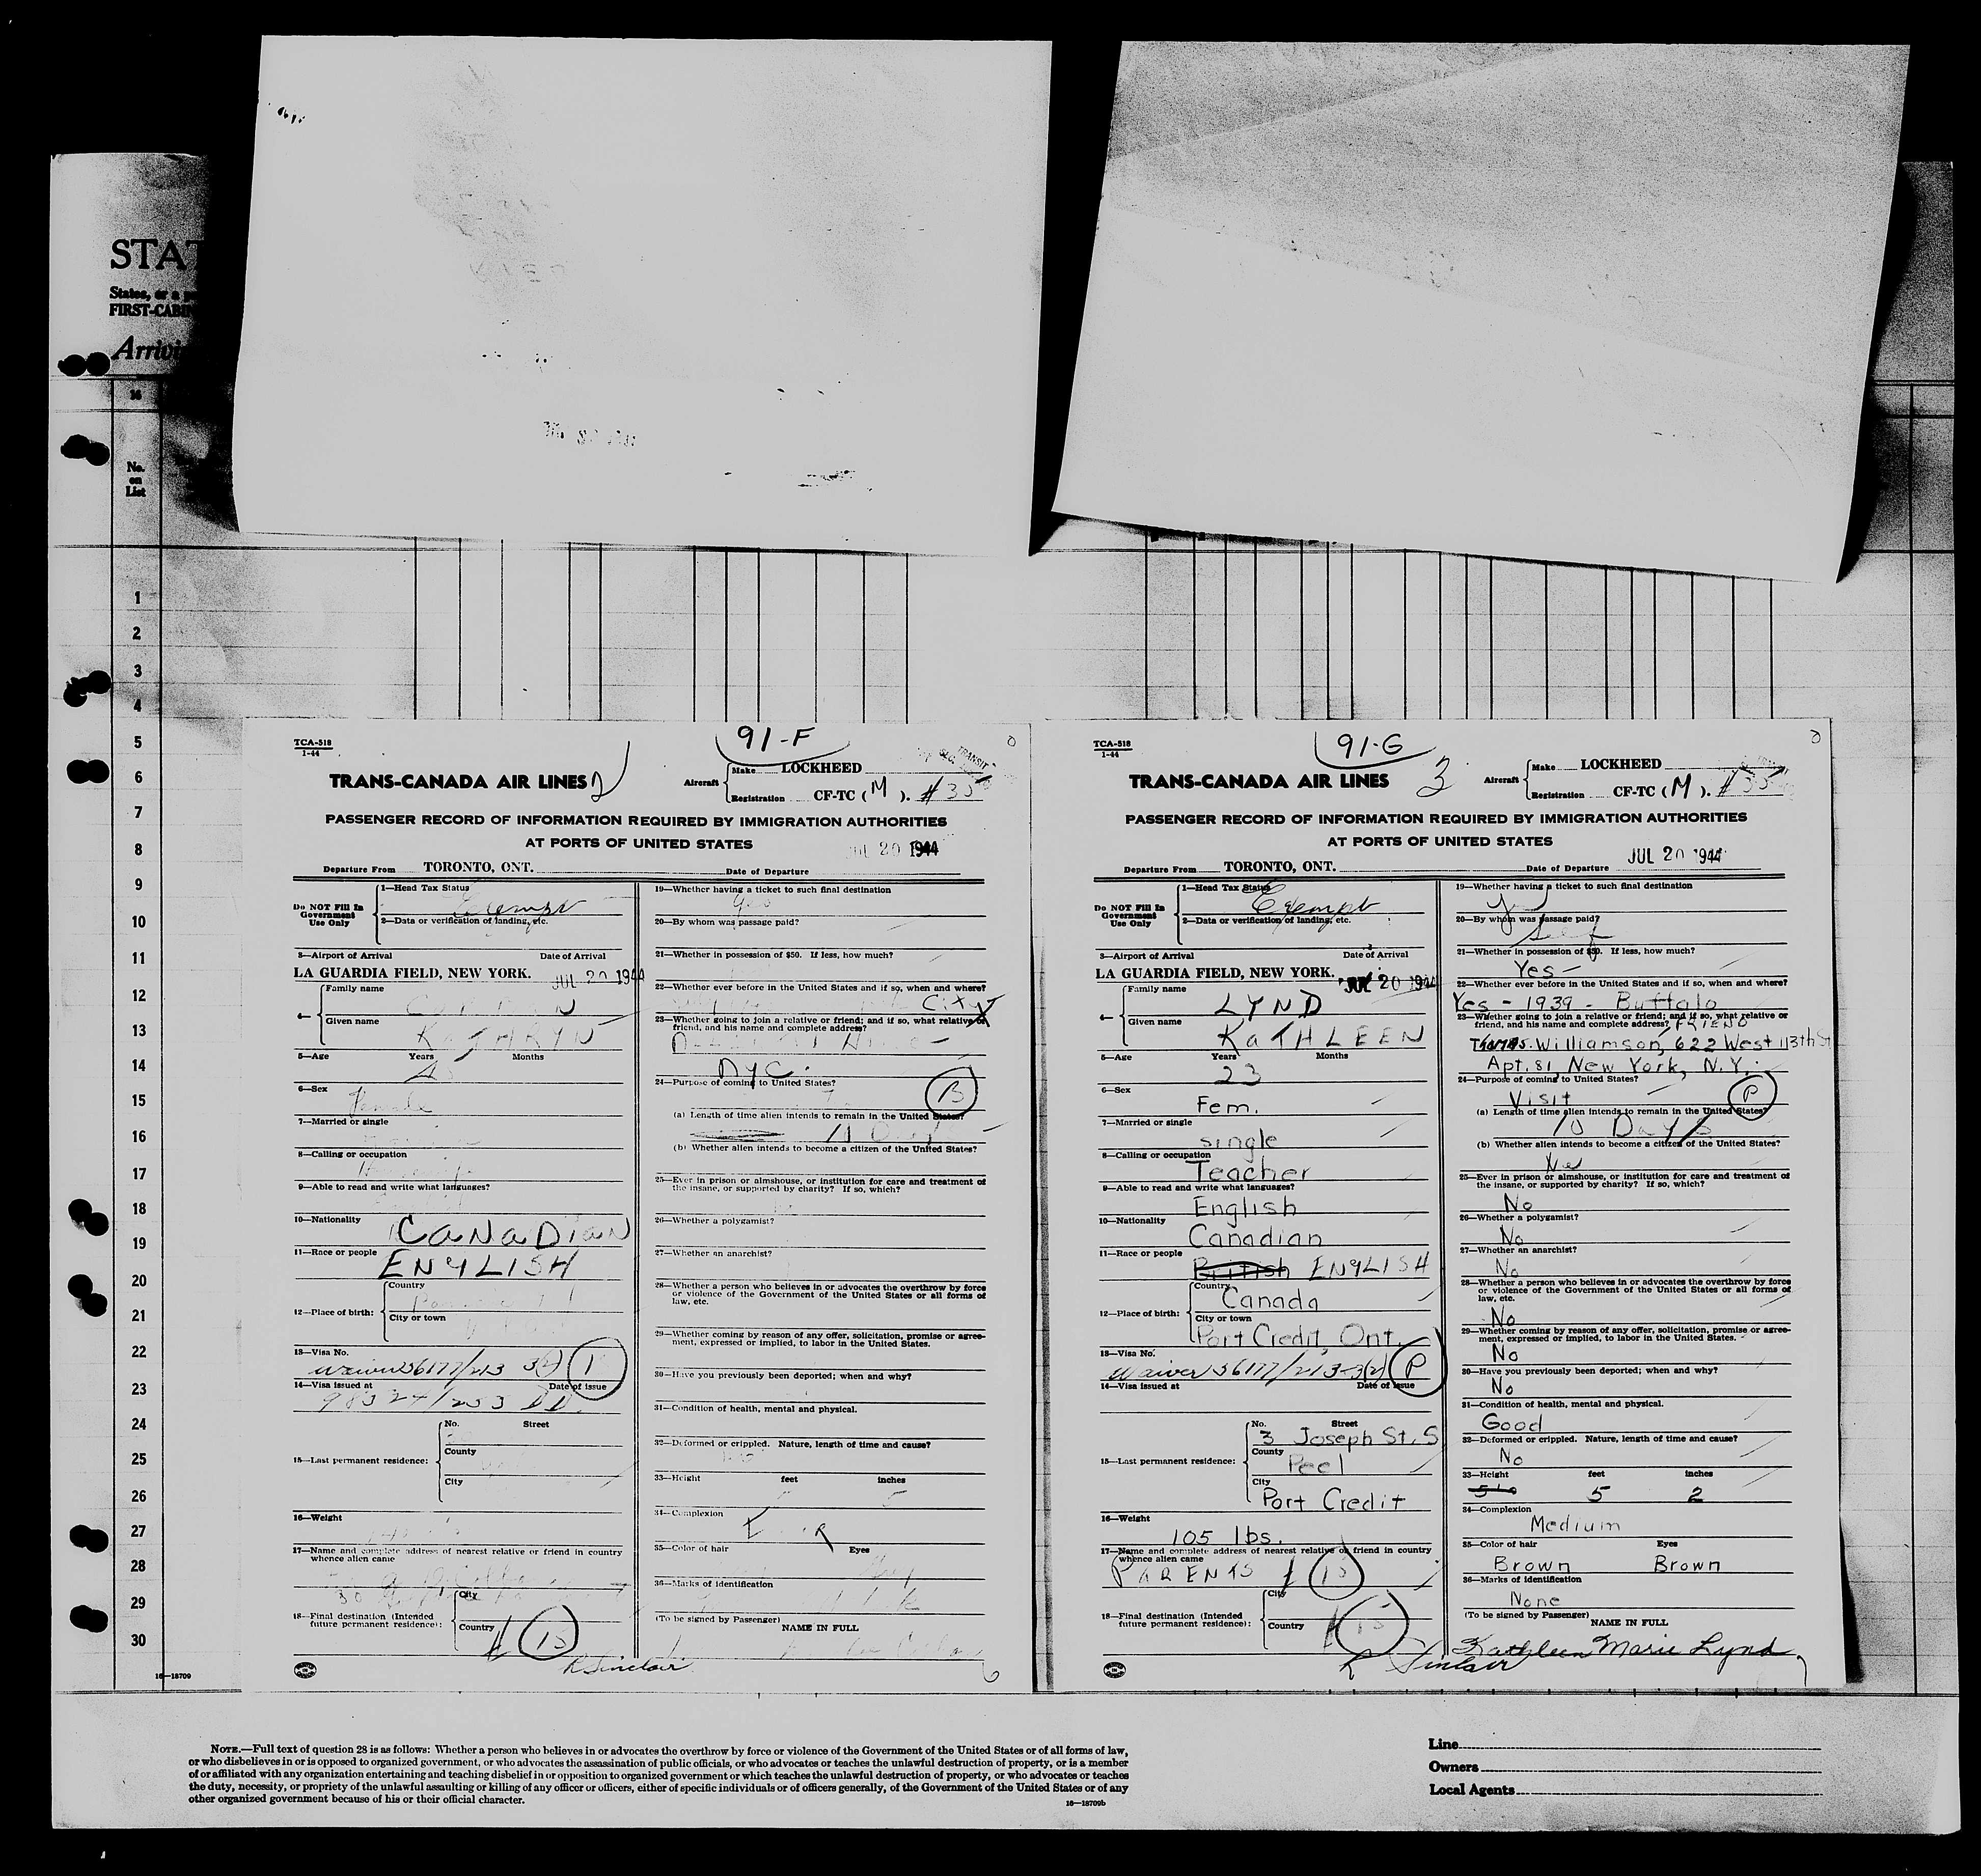 STAT
States, or a p
FIRST-CABIN
Arrivi
14
No.
on
List
1
2
3
4
5
6
7
8
9
10
11
12
13
14
15
16
17
18
19
20
21
22
23
24
25
26
27
28
29
30
16—18709
TCA-518
1-44
91-F
TRANS-CANADA AIR LINES 2
Aircraft
Make LOCKHEED
TRANSIT
Registration CF-TC ( M ). #35
PASSENGER RECORD OF INFORMATION REQUIRED BY IMMIGRATION AUTHORITIES
AT PORTS OF UNITED STATES
JUL 20 1944
Departure From TORONTO, ONT. Date of Departure
Do NOT Fill In
Government
Use Only
1—Head Tax Status
Exempt
2—Data or verification of landing, etc.
3—Airport of Arrival Date of Arrival
LA GUARDIA FIELD, NEW YORK. JUL 20 1944
4—
Family name
Given name
KATHRYN
5—Age Years Months
6—Sex
Female
7—Married or single
8—Calling or occupation
9—Able to read and write what languages?
10—Nationality CANADIAN
11—Race or people ENGLISH
12—Place of birth:
Country
City or town
13—Visa No.
Waiver 36177/213 3(2) P
14—Visa issued at Date of issue
98324/253 DD.
15—Last permanent residence:
No. Street
County
City
16—Weight
17—Name and complete address of nearest relative or friend in country
whence alien came
18—Final destination (Intended
future permanent residence):
City
Country
15
R Sinclair
19—Whether having a ticket to such final destination
yes
20—By whom was passage paid?
21—Whether in possession of $50. If less, how much?
22—Whether ever before in the United States and if so, when and where?
City
23—Whether going to join a relative or friend; and if so, what relative or
friend, and his name and complete address?
NYC.
24—Purpose of coming to United States?
B
(a) Length of time alien intends to remain in the United States?
(b) Whether alien intends to become a citizen of the United States?
25—Ever in prison or almshouse, or institution for care and treatment of
the insane, or supported by charity? If so, which?
26—Whether a polygamist?
27—Whether an anarchist?
28—Whether a person who believes in or advocates the overthrow by force
or violence of the Government of the United States or all forms of
law, etc.
29—Whether coming by reason of any offer, solicitation, promise or agree-
ment, expressed or implied, to labor in the United States.
30—Have you previously been deported; when and why?
31—Condition of health, mental and physical.
32—Deformed or crippled. Nature, length of time and cause?
33—Height feet inches
5
34—Complexion
35—Color of hair Eyes
36—Marks of identification
(To be signed by Passenger)
NAME IN FULL
6
TCA-518
1-44
91-G
TRANS-CANADA AIR LINES 3
Aircraft
Make LOCKHEED
Registration CF-TC ( M ). #35
PASSENGER RECORD OF INFORMATION REQUIRED BY IMMIGRATION AUTHORITIES
AT PORTS OF UNITED STATES
JUL 20 1944
Departure From TORONTO, ONT. Date of Departure
Do NOT Fill In
Government
Use Only
1—Head Tax Status
Exempt
2—Data or verification of landing, etc.
3—Airport of Arrival Date of Arrival
LA GUARDIA FIELD, NEW YORK. JUL 20 1944
4—
Family name
LYND
Given name
KATHLEEN
5—Age Years Months
23
6—Sex
Fem.
7—Married or single
single
8—Calling or occupation
Teacher
9—Able to read and write what languages?
English
10—Nationality
Canadian
11—Race or people
British ENGLISH
12—Place of birth:
Country
Canada
City or town
Port Credit, Ont.
13—Visa No.
Waiver 36177/213-3(2) P
14—Visa issued at Date of issue
15—Last permanent residence:
No. Street
3 Joseph St. S
County
Peel
City
Port Credit
16—Weight
105 lbs.
17—Name and complete address of nearest relative or friend in country
whence alien came
PARENTS 15
18—Final destination (Intended
future permanent residence):
City
Country
15
R Sinclair
19—Whether having a ticket to such final destination
yes
20—By whom was passage paid?
Self
21—Whether in possession of $50. If less, how much?
Yes -
22—Whether ever before in the United States and if so, when and where?
Yes - 1939 - Buffalo
23—Whether going to join a relative or friend; and if so, what relative or
friend, and his name and complete address? FRIEND
Williamson, 622 West 113th St
Apt. 81, New York, N.Y.
24—Purpose of coming to United States?
Visit P
(a) Length of time alien intends to remain in the United States?
10 Days
(b) Whether alien intends to become a citizen of the United States?
No
25—Ever in prison or almshouse, or institution for care and treatment of
the insane, or supported by charity? If so, which?
No
26—Whether a polygamist?
No
27—Whether an anarchist?
No
28—Whether a person who believes in or advocates the overthrow by force
or violence of the Government of the United States or all forms of
law, etc.
No
29—Whether coming by reason of any offer, solicitation, promise or agree-
ment, expressed or implied, to labor in the United States.
No
30—Have you previously been deported; when and why?
No
31—Condition of health, mental and physical.
Good
32—Deformed or crippled. Nature, length of time and cause?
No
33—Height feet inches
5 2
34—Complexion
Medium
35—Color of hair Eyes
Brown Brown
36—Marks of identification
None
(To be signed by Passenger)
NAME IN FULL
Kathleen Marie Lynd
7
NOTE.—Full text of question 28 is as follows: Whether a person who believes in or advocates the overthrow by force or violence of the Government of the United States or of all forms of law,
or who disbelieves in or is opposed to organized government, or who advocates the assassination of public officials, or who advocates or teaches the unlawful destruction of property, or is a member
of or affiliated with any organization entertaining and teaching disbelief in or opposition to organized government or which teaches the unlawful destruction of property, or who advocates or teaches
the duty, necessity, or propriety of the unlawful assaulting or killing of any officer or officers, either of specific individuals or of officers generally, of the Government of the United States or of any
other organized government because of his or their official character.
16—18709b
Line
Owners
Local Agents